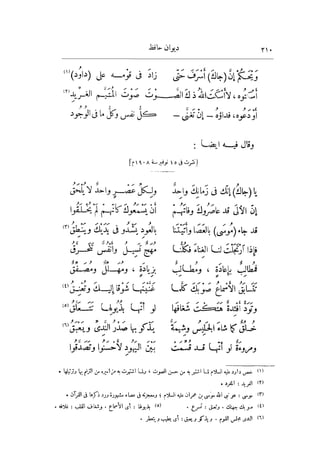 ٣١٠ ديوان حافظ
وَيْحَكُمْ إنّ (جاكَ) أسْرَفَ حَتّى زادَ فى قَوْمِه على (داوُد) (١)
أسْكِتُوه، لا أسْكَتَ اللهُ ذاكَ الصَّـوْتَ صَوْتَ المُتَيَّمِ الغِرِّيدِ (٢)
أو دَعُوه، فِداؤه — إنْ تَغَنَّى — كُلُّ نفسٍ وكلُّ ما فى الوُجودِ
وقال فيه ايضا :
[نشرت فى ١٥ نوفمبر سنة ١٩٠٨م]
يا (جاكُ) إنّك فى زَمانِكَ واحِدٌ ولِكلِّ عَصْرٍ واحِدٌ لا يُلْحَقُ
إنّ الأُلَى قد عاصَرُوكَ وفاتَهُمْ أن يَسْمَعُوكَ كأنّهم لَمْ يُخْلَقُوا
قد جاء (مُوسَى) بالعَصَا وأتَيْتَنا بالعُودِ يَشْدُو فى يَدَيْكَ ويَنْطِقُ (٣)
فإذا ارتَجَلْتَ لنا الغِناءَ فكُلُّنا مُهَجٌ تَسِيلُ وأنْفُسٌ تَتَحَرَّقُ
فمُطالِبٌ بإعادةٍ، ومُطالِبٌ بزِيادةٍ، ومُهَلِّلٌ ومُصَفِّقُ
تَتَسابَقُ الأسْماعُ صَوْبَكَ كلَّما غَنَّيْتَها شَوْقا إليكَ وتُعْنِقُ (٤)
وتَوَدُّ أفْئِدةٌ هَتَكْتَ شَغافَها لو أنّها بذُيُولِها تَتَعَلَّقُ (٥)
خُلُقٌ كما شاءَ الجَلِيسُ وشِيمَةٌ يَذْكو بها صَدْرُ النَّدِىِّ ويَعْبَقُ (٦)
ومُروءةٌ لو أنّها قد قُسِّمَتْ بَيْنَ اليَهُودِ لأحْسَنُوا وتَصَدَّقوا
(١) خص داود عليه السلام لما اشتهر به من حسن الصوت ، ولما اشتهرت به مزاميره من الترنم بها وترتيلها .
(٢) الغريد : الخبره .
(٣) موسى : هو نبى الله موسى بن عمران عليه السلام ؛ ومعجزته فى عصاه مشهورة ورد ذكرها فى القرآن .
(٤) صوبك جهتك . وتعنق : تسرع . (٥) بذيولها : أى الأسماع . وشغاف القلب : غلافه .
(٦) الندى مجلس القوم . ويذكو ويعبق : أى يطيب ويتعطر .